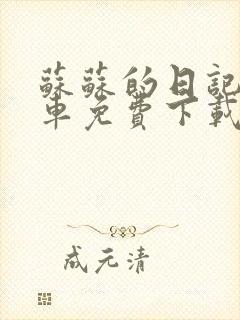 蘇蘇的日記
车免費下載
成元清